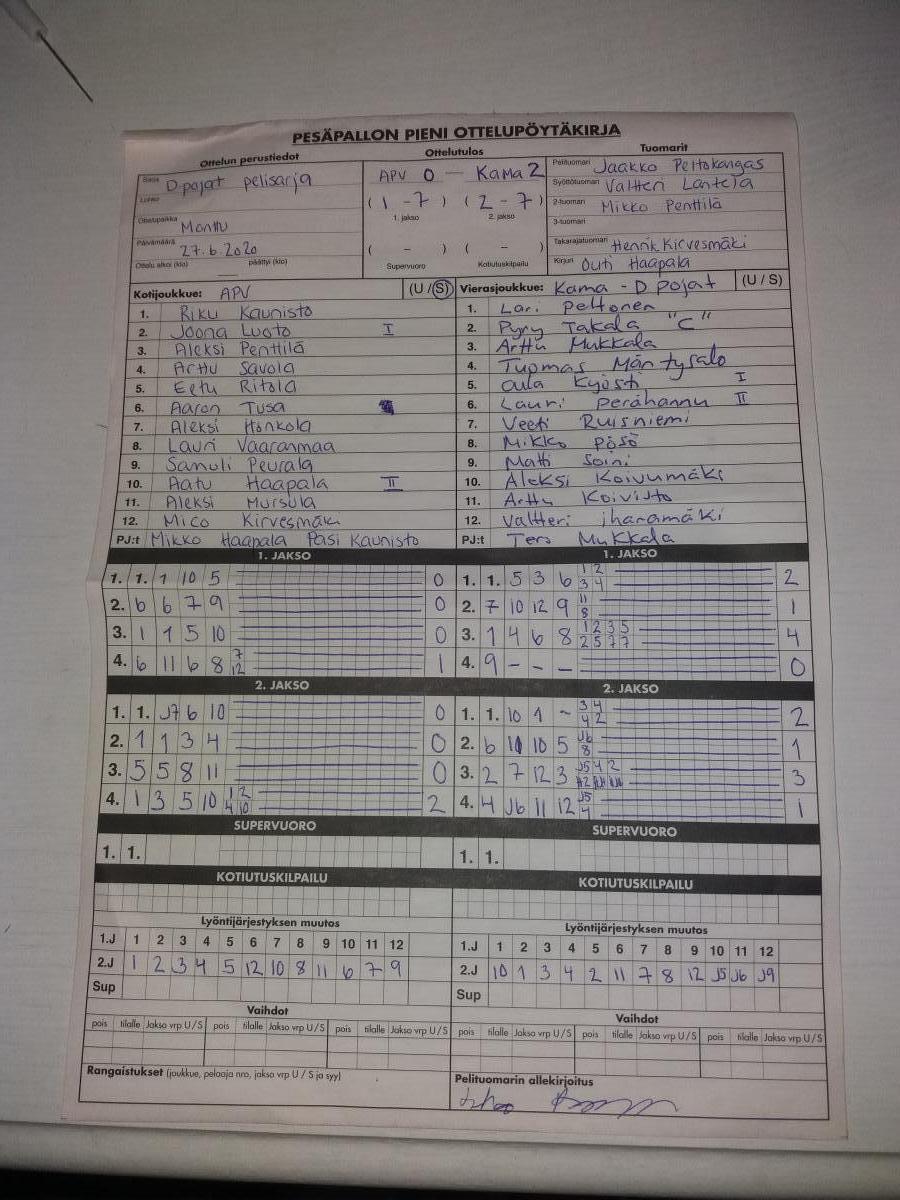 PESÄPALLON PIENI OTTELUPÖYTÄKIRJA
Ottelun perustiedot Ottelutulos Tuomarit
Sarja D pojat pelisarja
Lohko
Ottelupaikka Monttu
Päivämäärä 27.6.2020
Ottelu alkoi (klo) päättyi (klo)
APV 0 – Kama 2
( 1 - 7 ) ( 2 - 7 )
1. jakso 2. jakso
( – ) ( – )
Supervuoro Kotiutuskilpailu
Pelituomari Jaakko Peltokangas
Syöttötuomari Valtteri Lantela
2-tuomari Mikko Penttilä
3-tuomari
Takarajatuomari Henrik Kirvesmäki
Kirjuri Outi Haapala
Kotijoukkue: APV (U / S)
1. Riku Kaunisto
2. Joona Luoto I
3. Aleksi Penttilä
4. Arttu Savola
5. Eetu Ritola
6. Aaron Tusa
7. Aleksi Honkola
8. Lauri Vaaranmaa
9. Samuli Peurala
10. Aatu Haapala II
11. Aleksi Mursula
12. Mico Kirvesmäki
PJ:t Mikko Haapala Pasi Kaunisto
Vierasjoukkue: Kama - D pojat (U / S)
1. Lari Peltonen
2. Pyry Takala "C"
3. Arttu Mukkala
4. Tuomas Mäntysalo
5. Oula Kyösti I
6. Lauri Perähannu II
7. Veeti Ruisniemi
8. Mikko Pösö
9. Matti Soini
10. Aleksi Koivumäki
11. Arttu Koivisto
12. Valtteri Iharamäki
PJ:t Tero Mukkala
1. JAKSO 1. JAKSO
1. 1. 1 10 5 0
2. 6 6 7 9 0
3. 1 1 5 10 0
4. 6 11 6 8 7 12 1
1. 1. 5 3 6 1 2 3 4 2
2. 7 10 12 9 11 8 1
3. 1 4 6 8 1 2 3 5 2 5 7 7 4
4. 9 - - - 0
2. JAKSO 2. JAKSO
1. 1. J7 6 10 0
2. 1 1 3 4 0
3. 5 5 8 11 0
4. 1 3 5 10 1 2 4 10 2
1. 1. 10 1 - 3 4 4 2 2
2. 6 10 10 5 J6 8 1
3. 2 7 12 3 J5 4 2 3
4. 4 J6 11 12 J5 4 1
SUPERVUORO SUPERVUORO
1. 1. 1. 1.
KOTIUTUSKILPAILU KOTIUTUSKILPAILU
Lyöntijärjestyksen muutos
1.J 1 2 3 4 5 6 7 8 9 10 11 12
2.J 1 2 3 4 5 12 10 8 11 6 7 9
Sup
Lyöntijärjestyksen muutos
1.J 1 2 3 4 5 6 7 8 9 10 11 12
2.J 10 1 3 4 2 11 7 8 12 J5 J6 J9
Sup
Vaihdot Vaihdot
pois tilalle Jakso vrp U / S pois tilalle Jakso vrp U / S pois tilalle Jakso vrp U / S
pois tilalle Jakso vrp U / S pois tilalle Jakso vrp U / S pois tilalle Jakso vrp U / S
Rangaistukset (joukkue, pelaaja nro, jakso vrp U / S ja syy)
Pelituomarin allekirjoitus